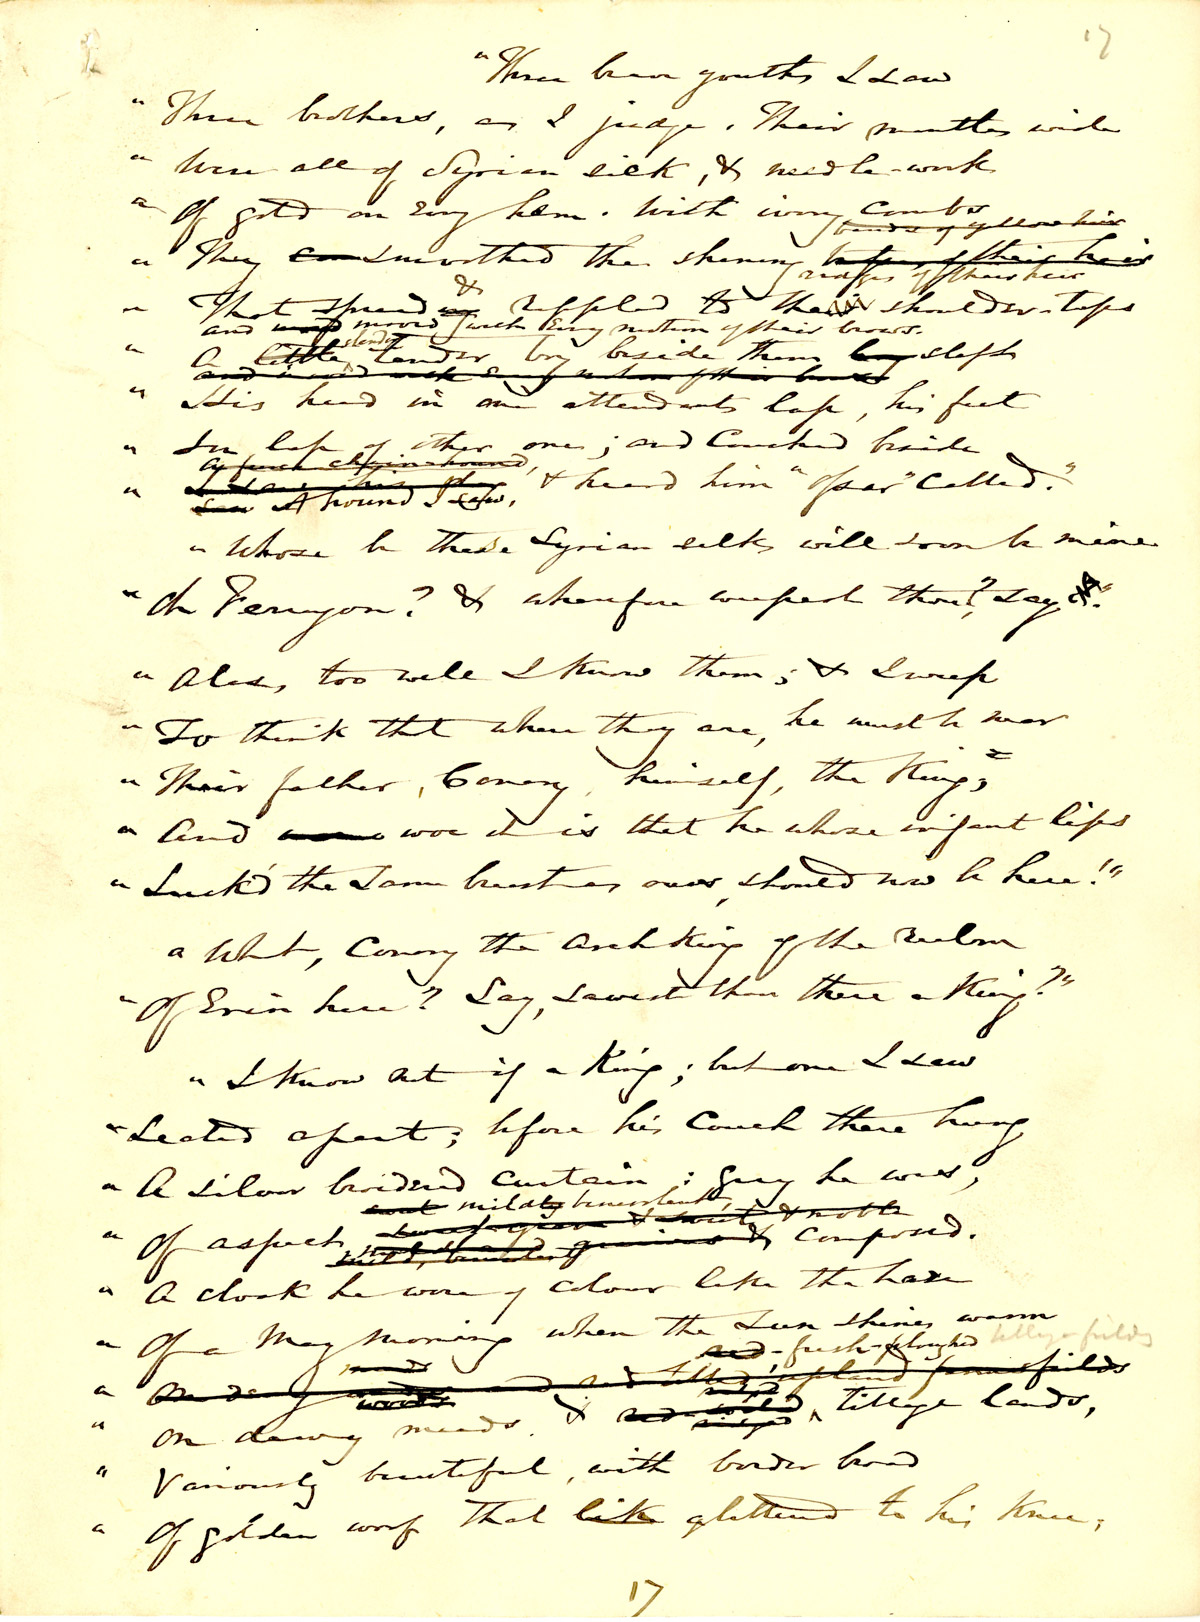 17
"Three brave youths I saw
" Three brothers, as I judge. Their mantles wide
" Were all of Syrian silk, & needle-work
" Of gold on every hem. With ivory combs
bands of yellow hair
" They smoothed the shining ridges of their hair
" That spread & rippled to the shoulder-tops
and moved with every motion of their brows.
" A little slender tender boy beside them slept
and moved with every motion of their brows
" His head in one attendant's lap, his feet
" In lap of other one; and couched beside
" A hound I saw, & heard him "Ossar" called."
" Whose be these Syrian silks will soon be mine
" Oh Ferrogon? & wherefore weepest thou?, say."
" Alas, too well I know them; & I weep
" To think that where they are, he must be near
" Their father, Conary, himself, the King;
" And woe it is that he whose infant lips
" Suck'd the same breast as ours, should now be here!"
" What, Conary the Arch King of the realm
" Of Erin here? Say, sawest thou there a King?"
" I know not if a King; but one I saw
" Seated apart; before his couch there hung
" A silver broidered curtain; grey he was,
mild benevolent,
" Of aspect & composed.
" A cloak he wore of colour like the haze
" Of a May morning when the Sun shines warm
red, fresh-ploughed tillage fields
" On dewy meads and red tilled upland farm fields
" On dewy meads & tillage lands,
" Variously beautiful, with border broad
" Of golden woof that glittered to his knee;
17